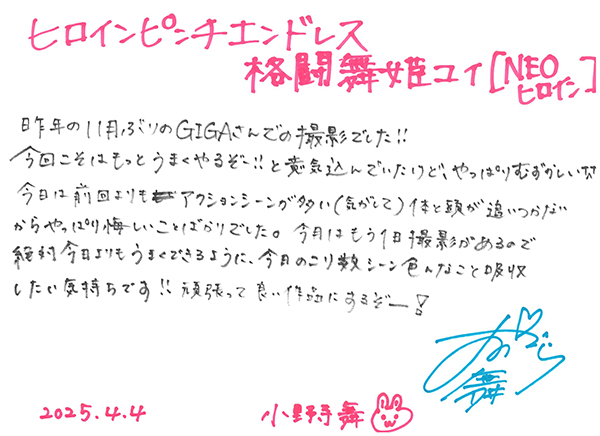 ヒロインピンチエンドレス
格闘舞姫ユイ[NEO
ヒロイン]
昨年の11月ぶりのGIGAさんでの撮影でした!!
今回こそはもっとうまくやるぞー!!と意気込んでいたけど、やっぱりむずかしい
今日は前回よりもアクションシーンが多い(気がして)体と頭が追いつかない
からやっぱり悔しいことばかりでした。今月はもう1日撮影があるので
絶対今日よりもうまくできるように、今日のこり数シーン色んなこと吸収
したい気持ちです!!頑張って良い作品にするぞー!
舞
2025.4.4
小野寺舞